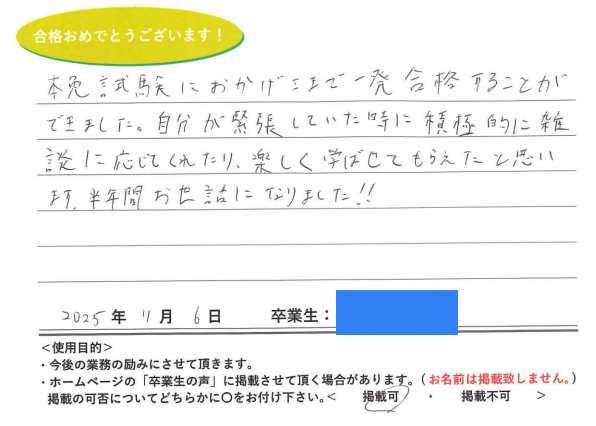 合格おめでとうございます！
本免試験におかげさまで一発合格することが
できました。自分が緊張していた時に積極的に雑
談に応じてくれたり、楽しく学ばせてもらえたと思い
ます。半年間お世話になりました!!
2025年 11月 6日 卒業生：
＜使用目的＞
・今後の業務の励みにさせて頂きます。
・ホームページの「卒業生の声」に掲載させて頂く場合があります。（お名前は掲載致しません。）
掲載の可否についてどちらかに〇をお付け下さい。＜ 掲載可 ・ 掲載不可 ＞